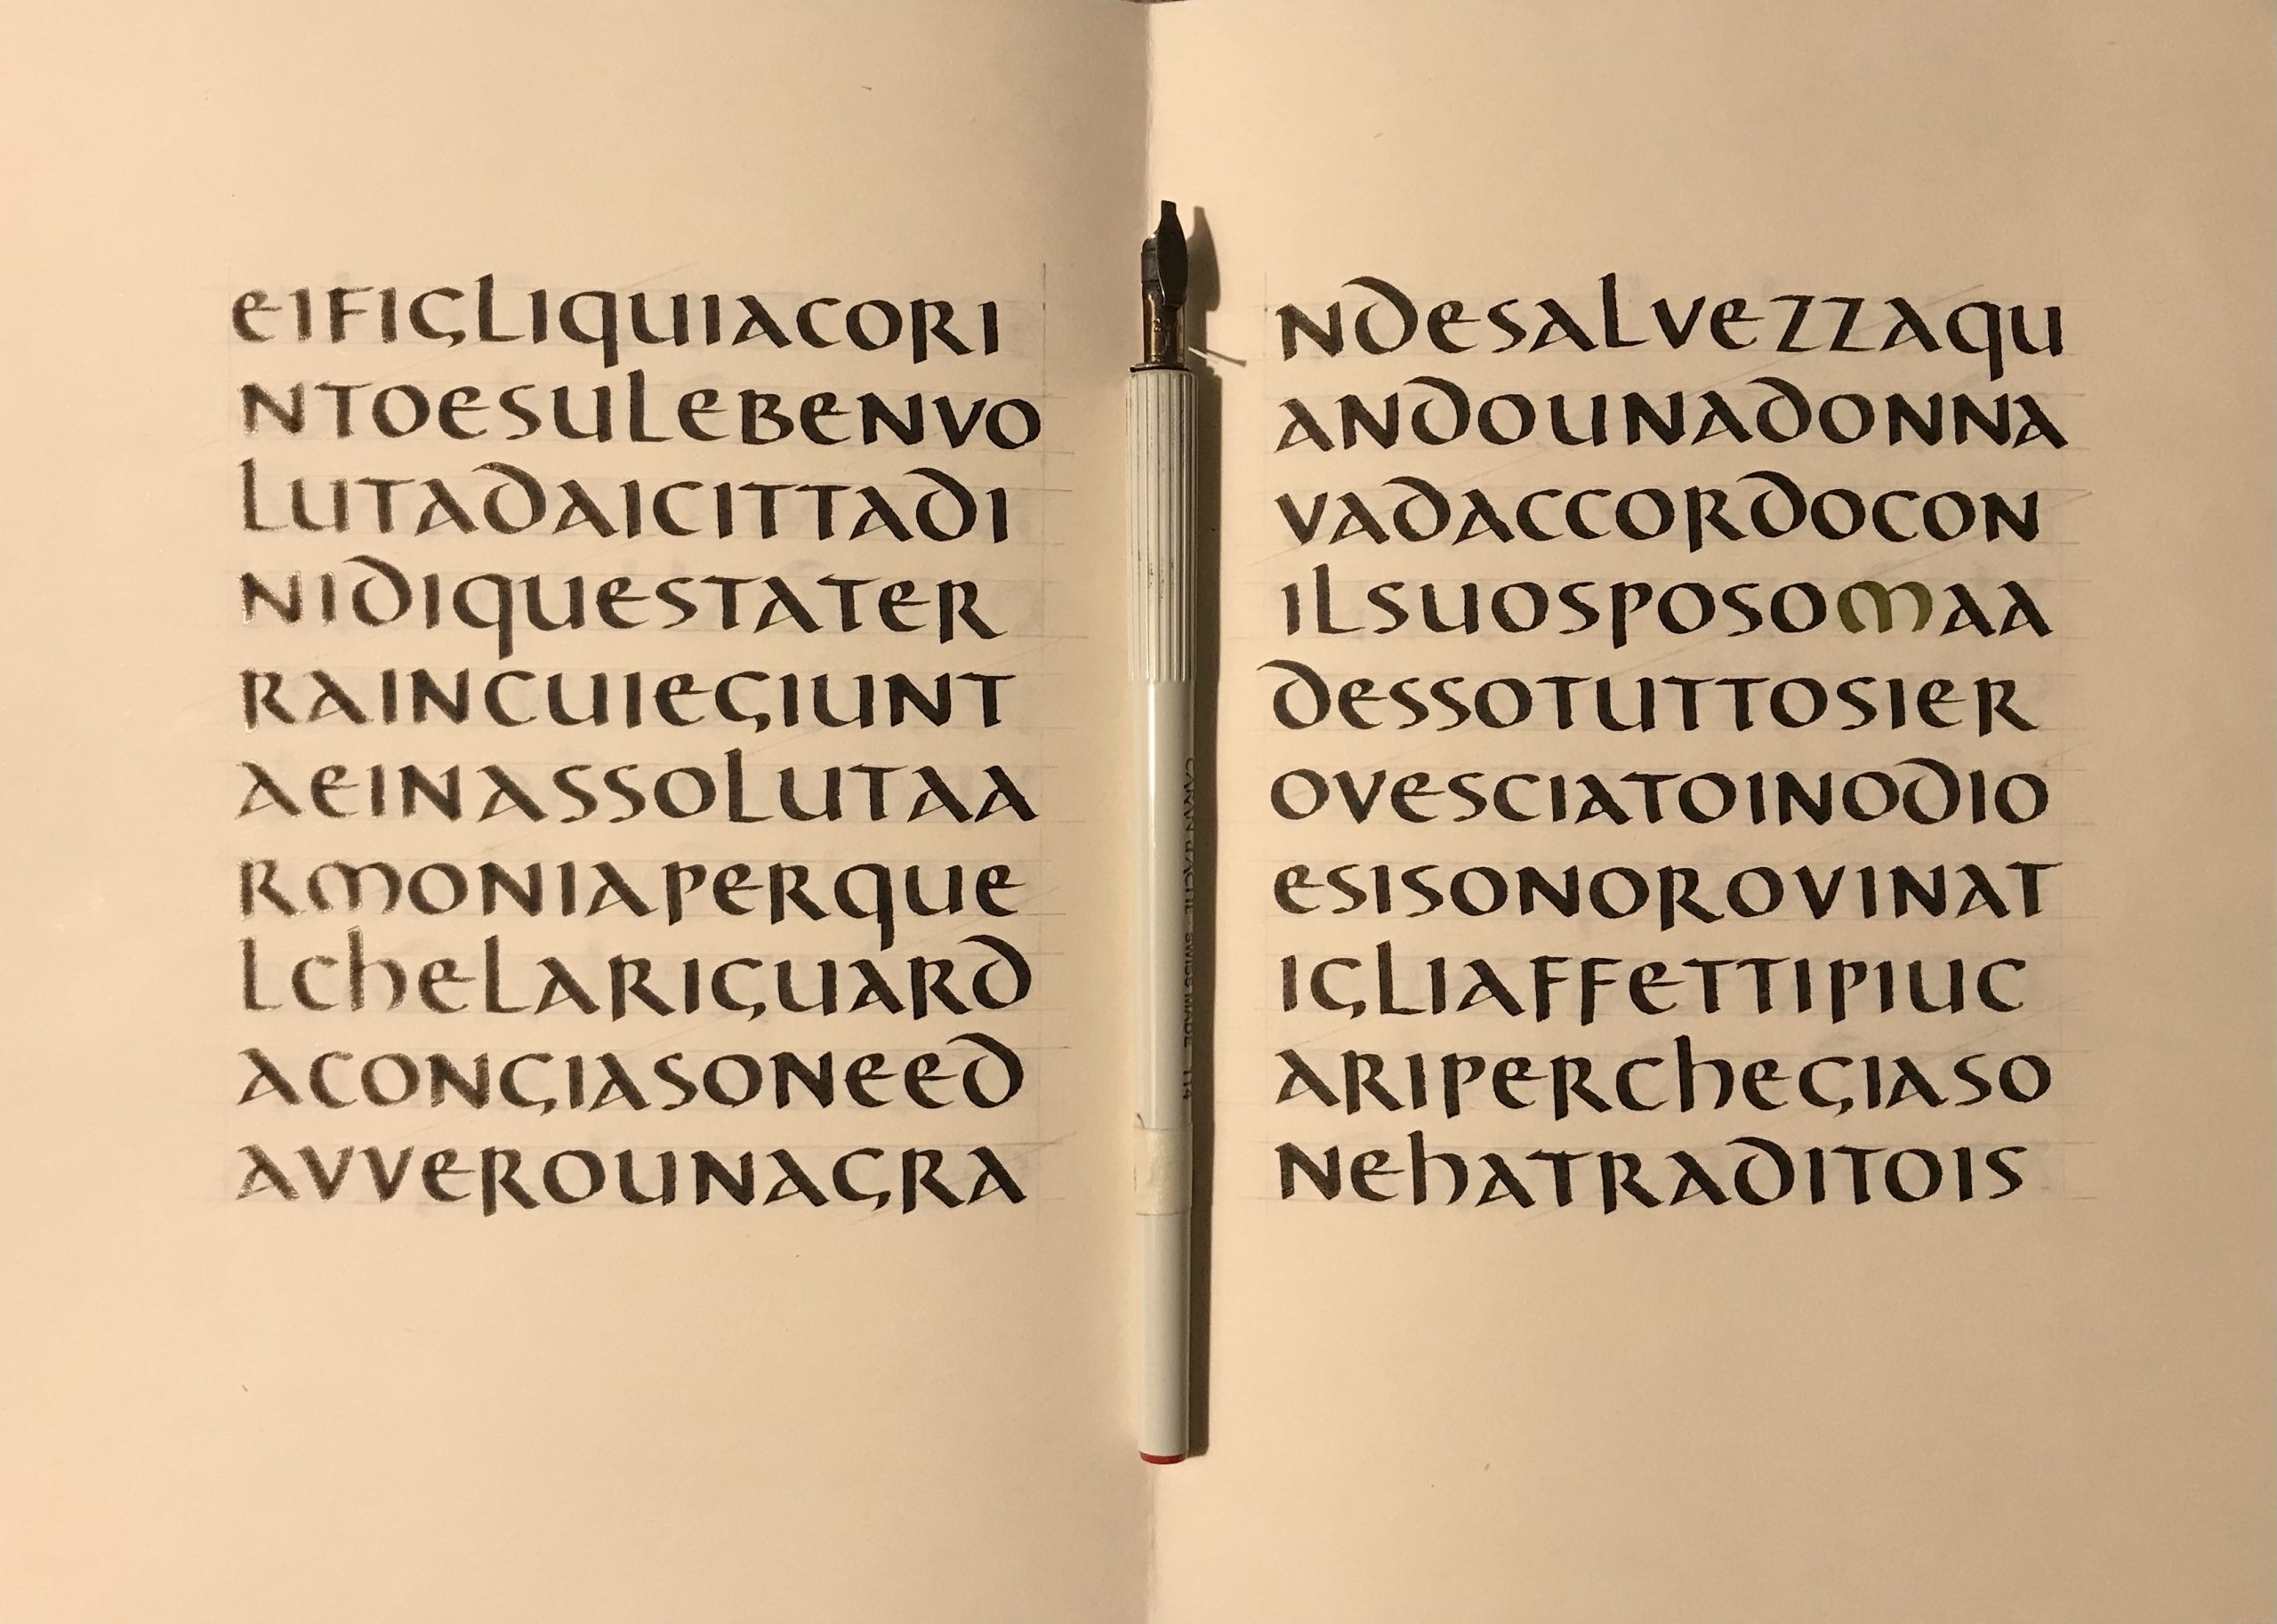 EIFIGLIQUIACORI
NTOESULEBENVO
LUTADAICITTADI
NIDIQUESTATER
RAINCUIEGIUNT
AEINASSOLUTAA
RMONIAPERQUE
LCHELARIGUARD
ACONGIASONEED
AVVEROUNAGRA
NDESALVEZZAQU
ANDOUNADONNA
VADACCORDOCON
ILSUOSPOSOMAA
DESSOTUTTOSIER
OVESCIATOINODIO
ESISONOROVINAT
IGLIAFFETTIPIUC
ARIPERCHEGIASO
NEHATRADITOIS